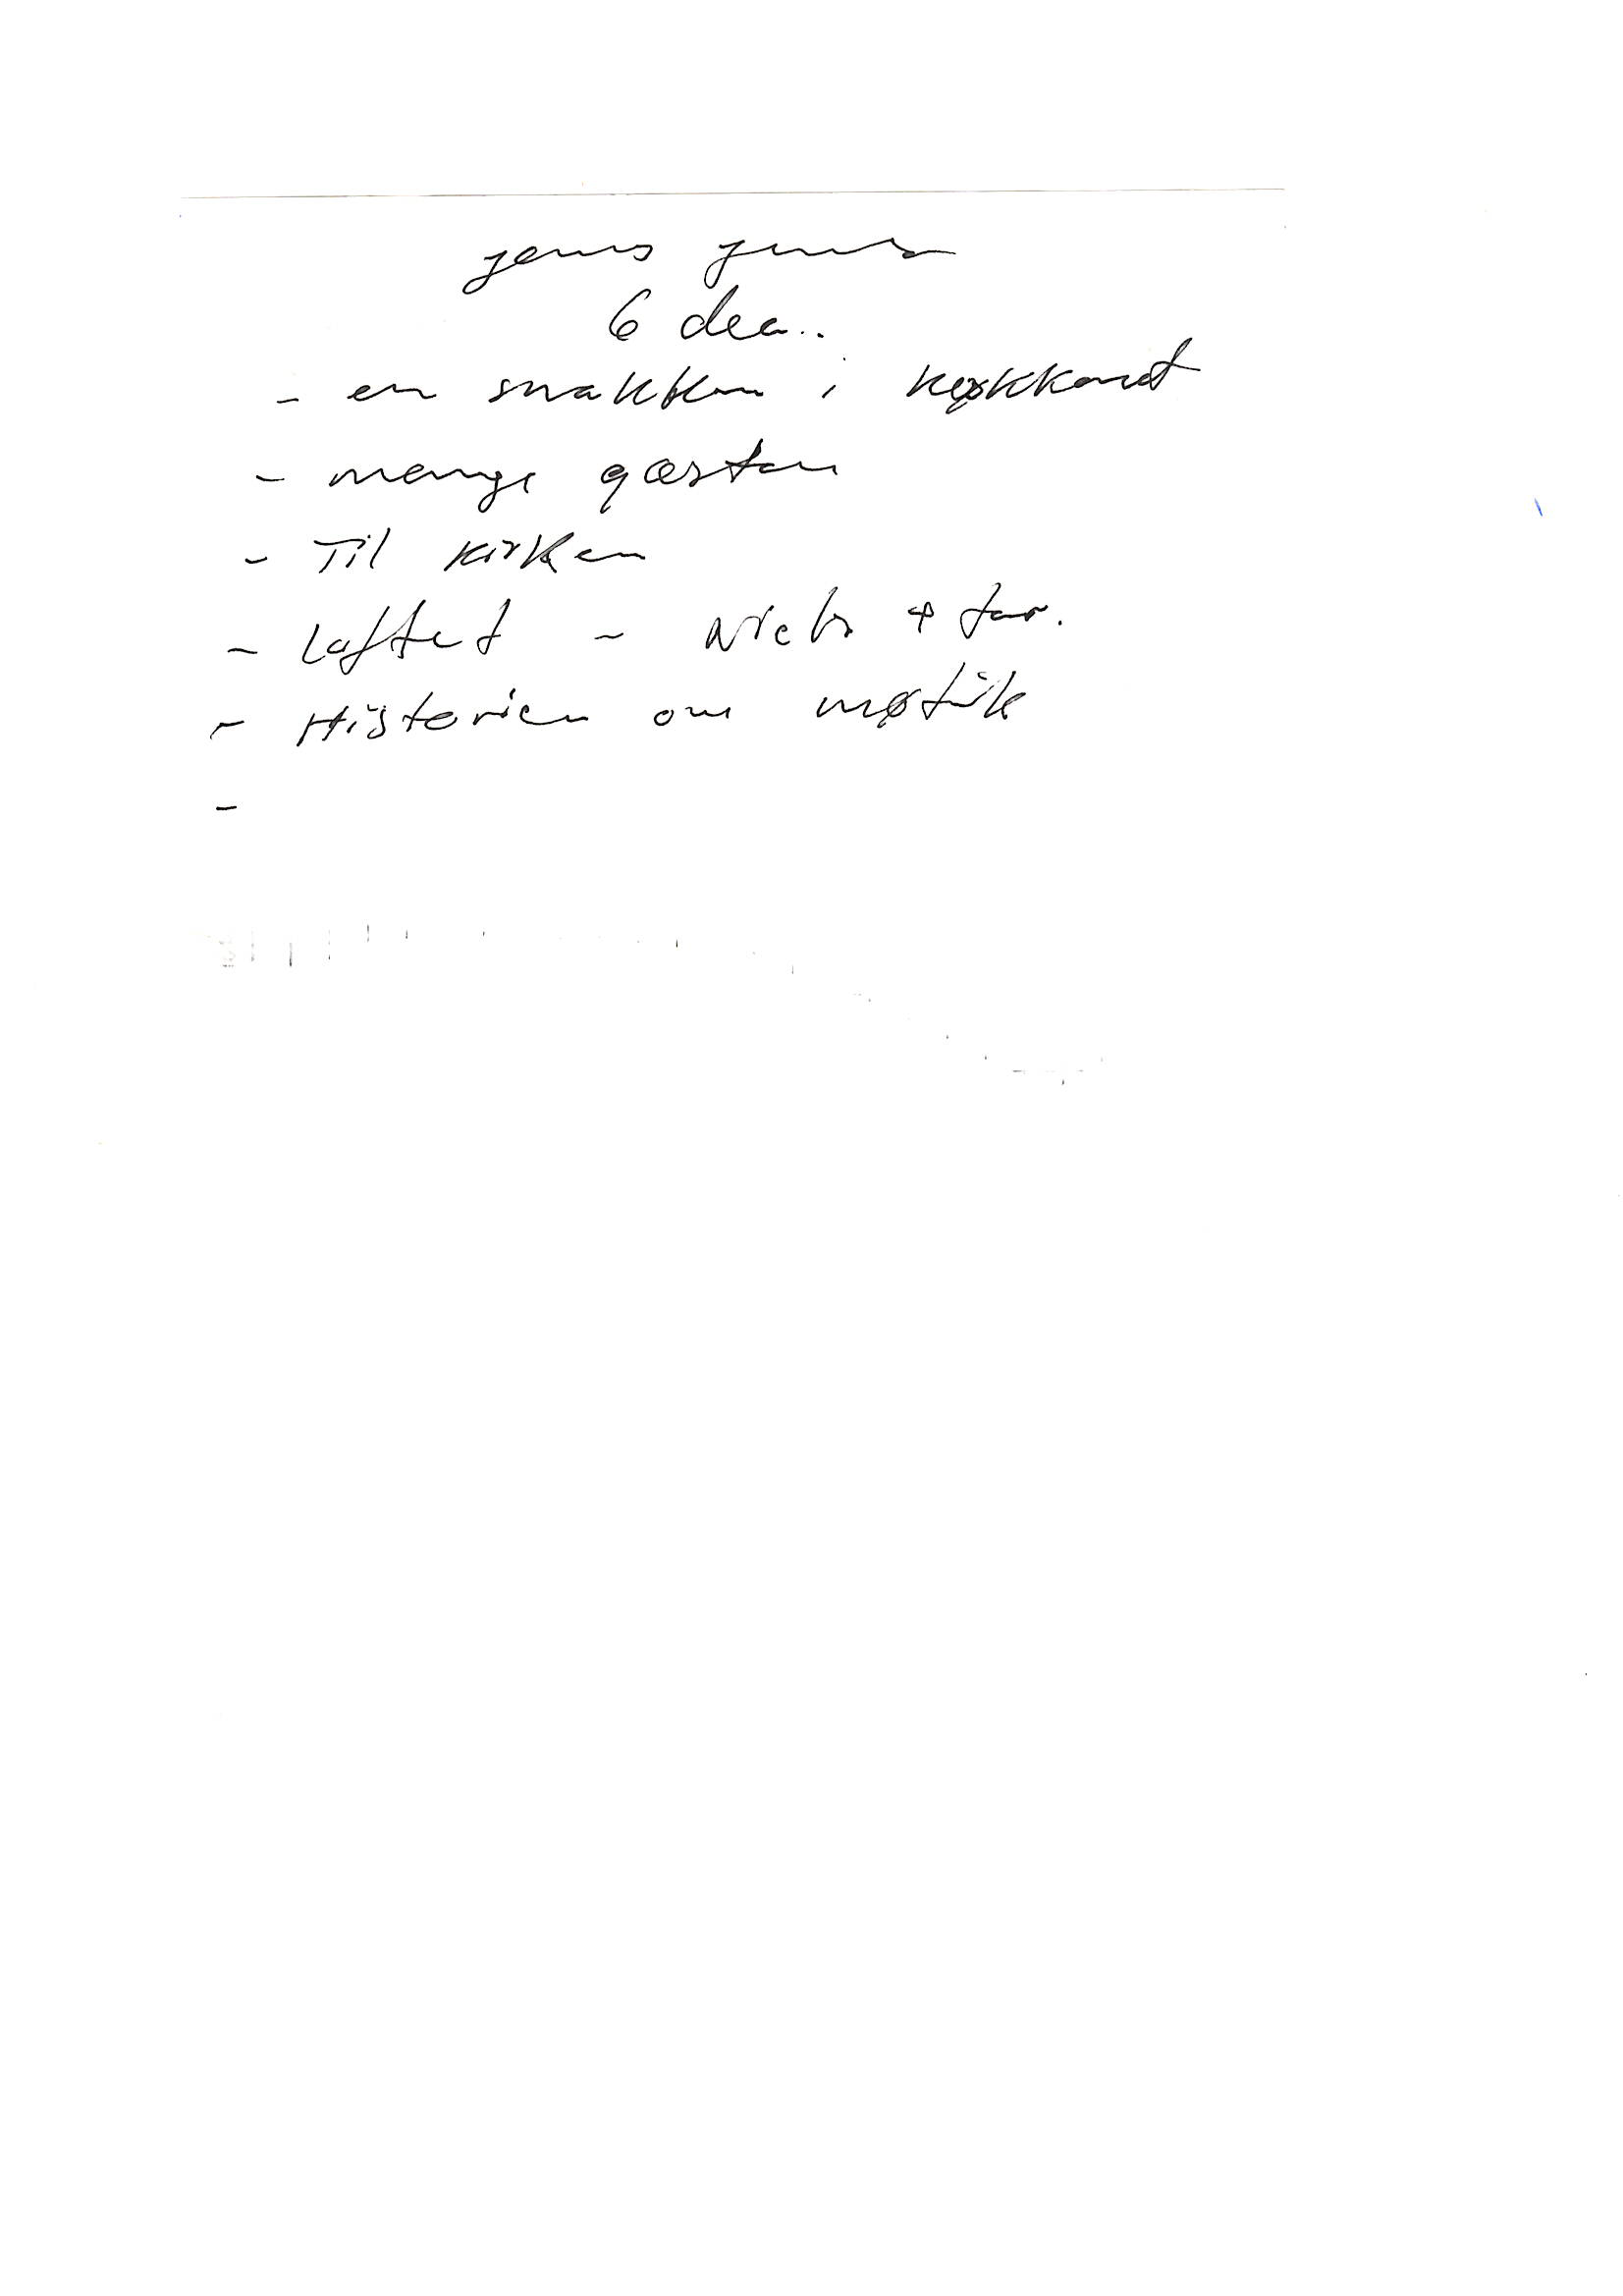 Jens Juul
6 dec..
- en snakken i køkkenet
- mange gæster
- Til kirken
- Loftet - Niels + far.
- Historien om
-